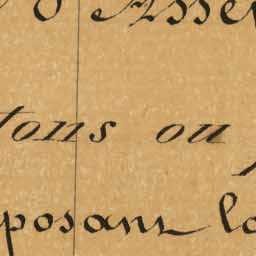 Asse
tons ou
posant lo